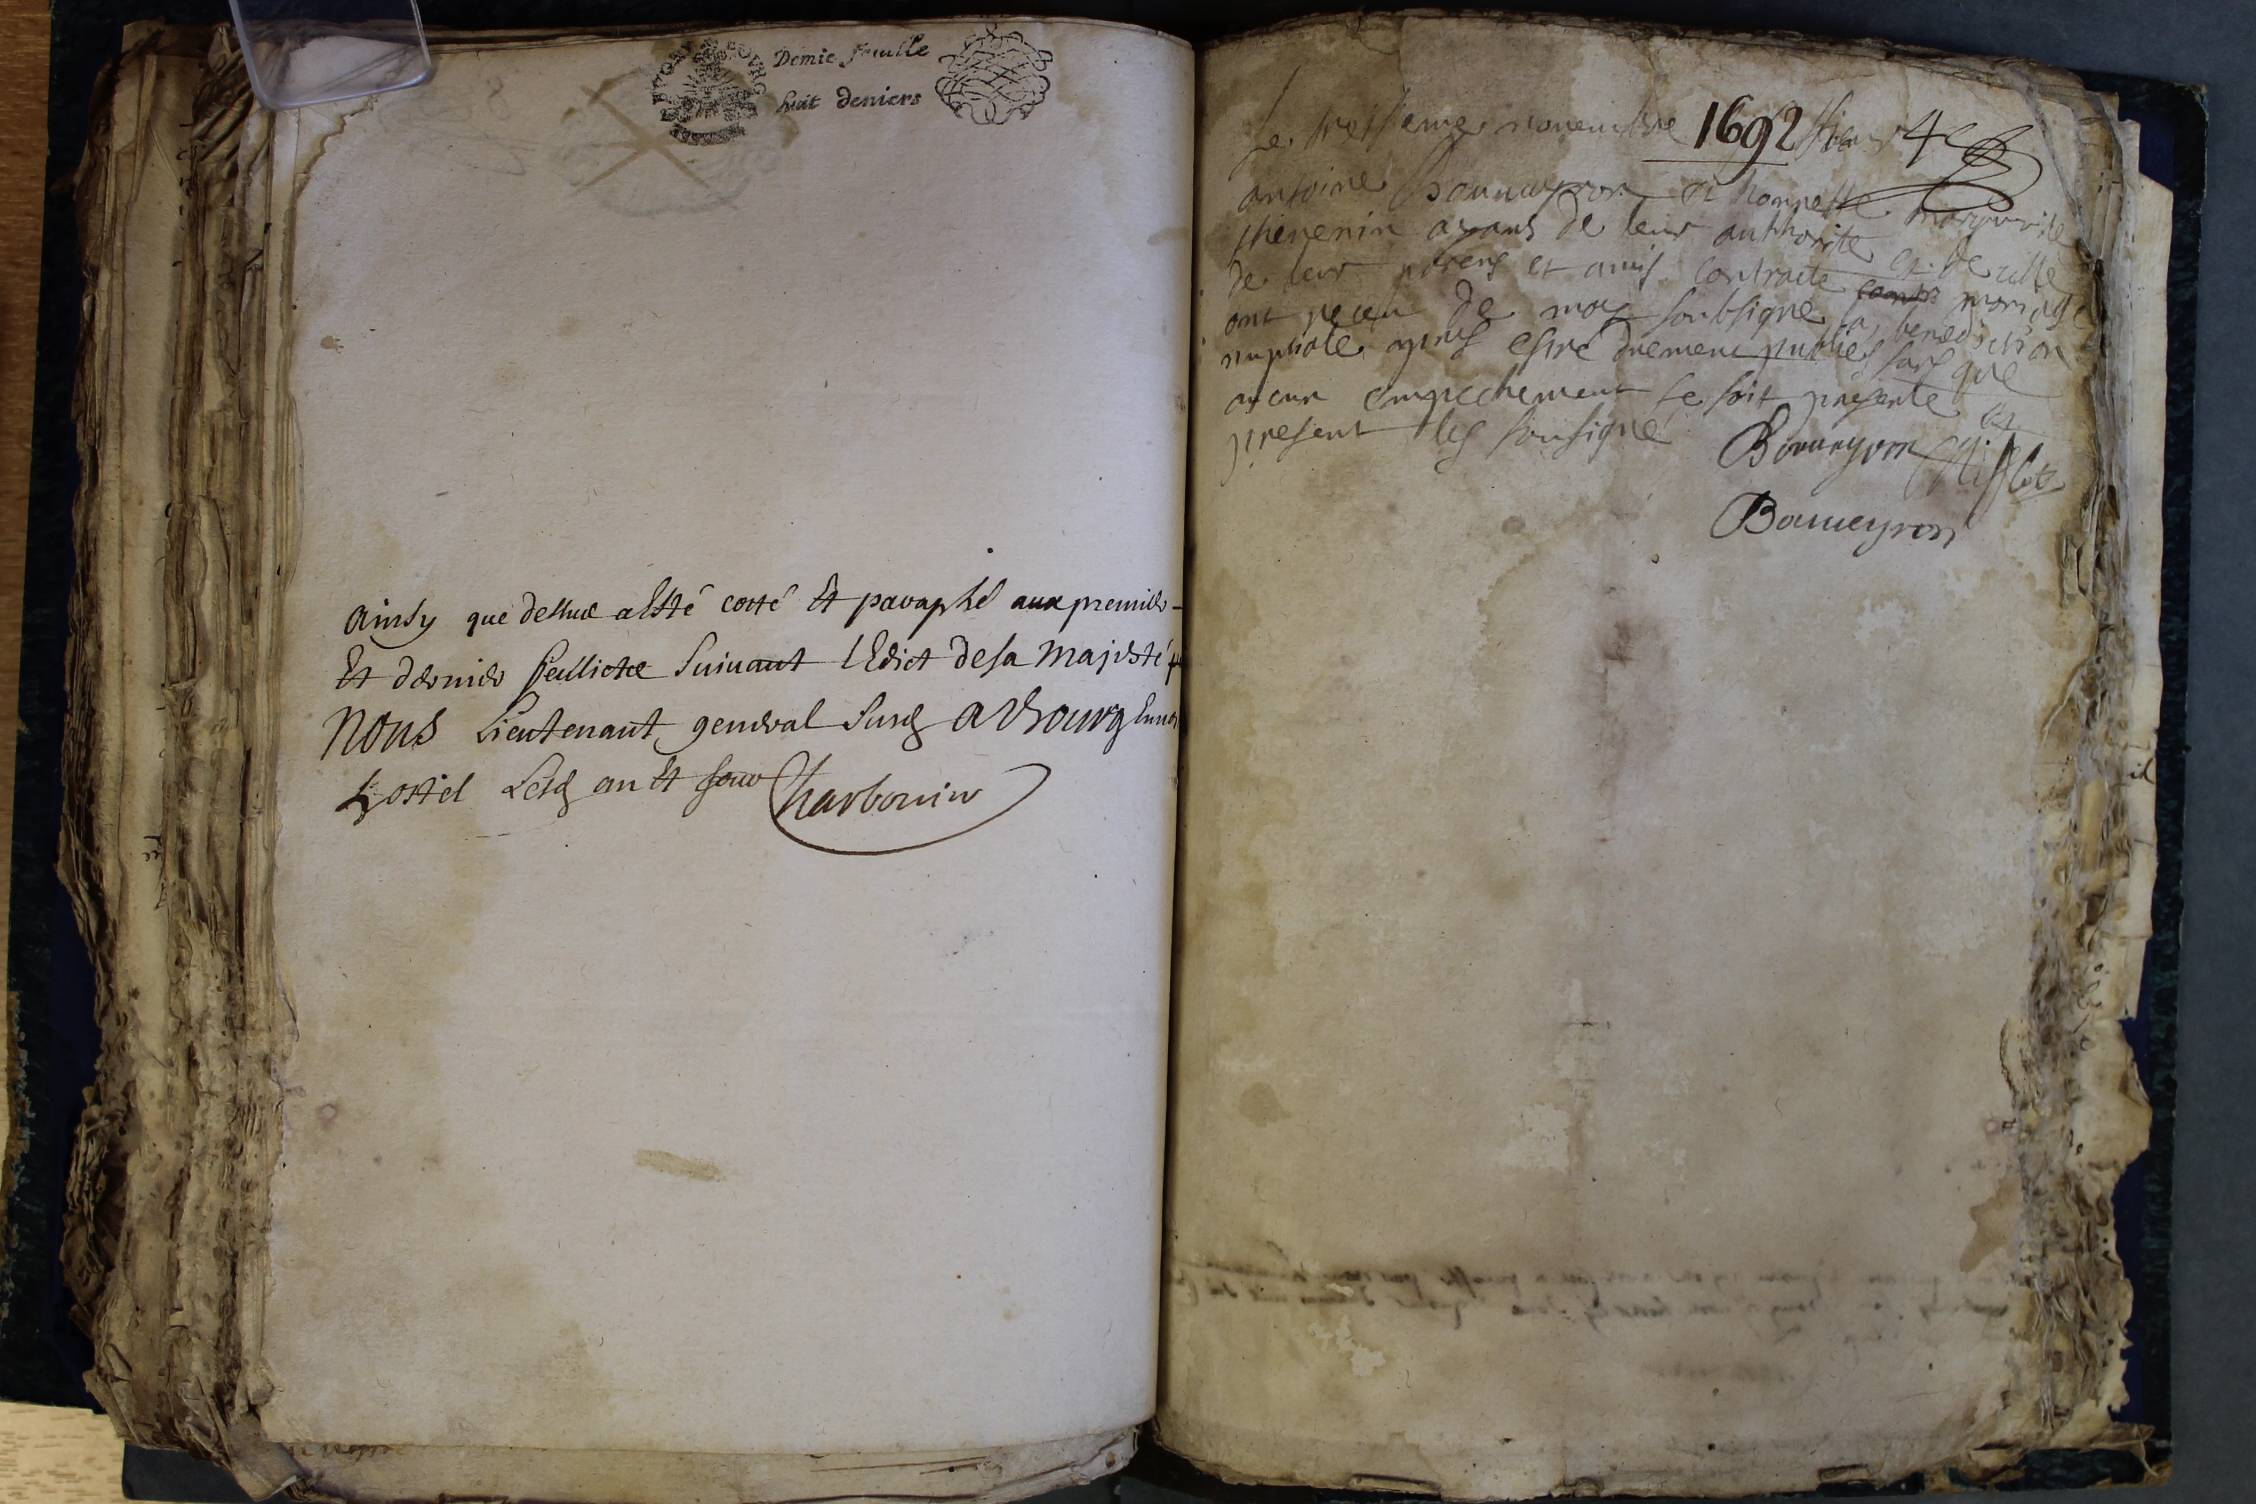 Demie feuille
huit deniers
Ainsy que dessus a Esté cotté Et paraphé aux premier
Et dernier feullietz suivant l'Edict de sa Majesté p
Nous Lieutenant general susd A Bourg En n
hostel Lesd an Et jour Charbonier
1692 4e
Le treisieme novembre sieur
antoine Bonneyron et honneste marguerite
thevenin ayans de leur authorite et de celle
de leur parens et amis contracte mariage
ont receu de moy soubsigne la benediction
nuptiale apres estre duement publies sans que
aucun empechement se soit presente en
present les sousigne
Bonneyron
Bonneyron